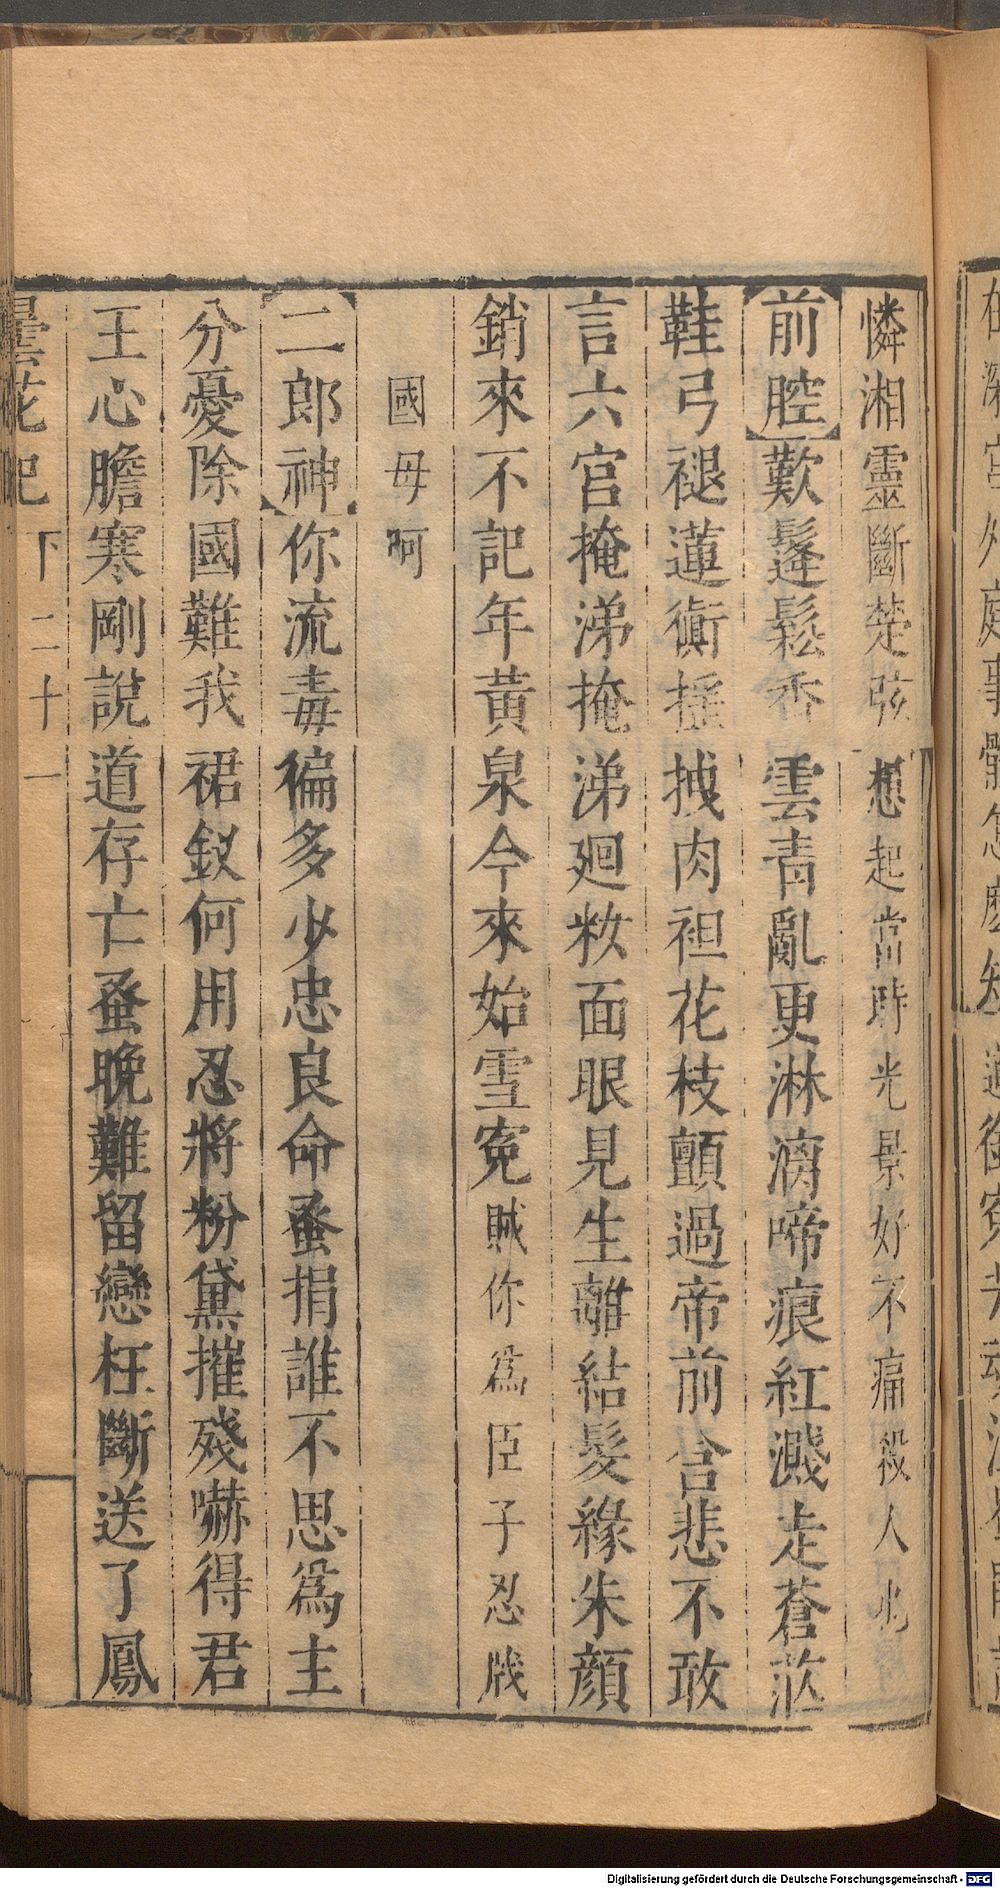 憐湘靈斷楚弦想起當時光景好不痛殺人也
【前腔】歎鬔鬆香雲青亂更淋漓啼痕紅濺走蒼茫
鞋弓褪蓮衠揺拽肉袒花枝顫過帝前含悲不敢
言六宮掩涕掩涕廻粧面眼見生離結髮緣朱顔
銷來不記年黃泉今來始雪寃賊你爲臣子忍戕
國母呵
【二郎神】你流毒徧多少忠良命蚤捐誰不思爲主
分憂除國難我裙釵何用忍將粉黛摧殘嚇得君
王心膽寒剛說道存亡蚤晚難留戀枉斷送了鳳
曇花記 下 二十一
Digitalisierung gefördert durch die Deutsche Forschungsgemeinschaft - DFG